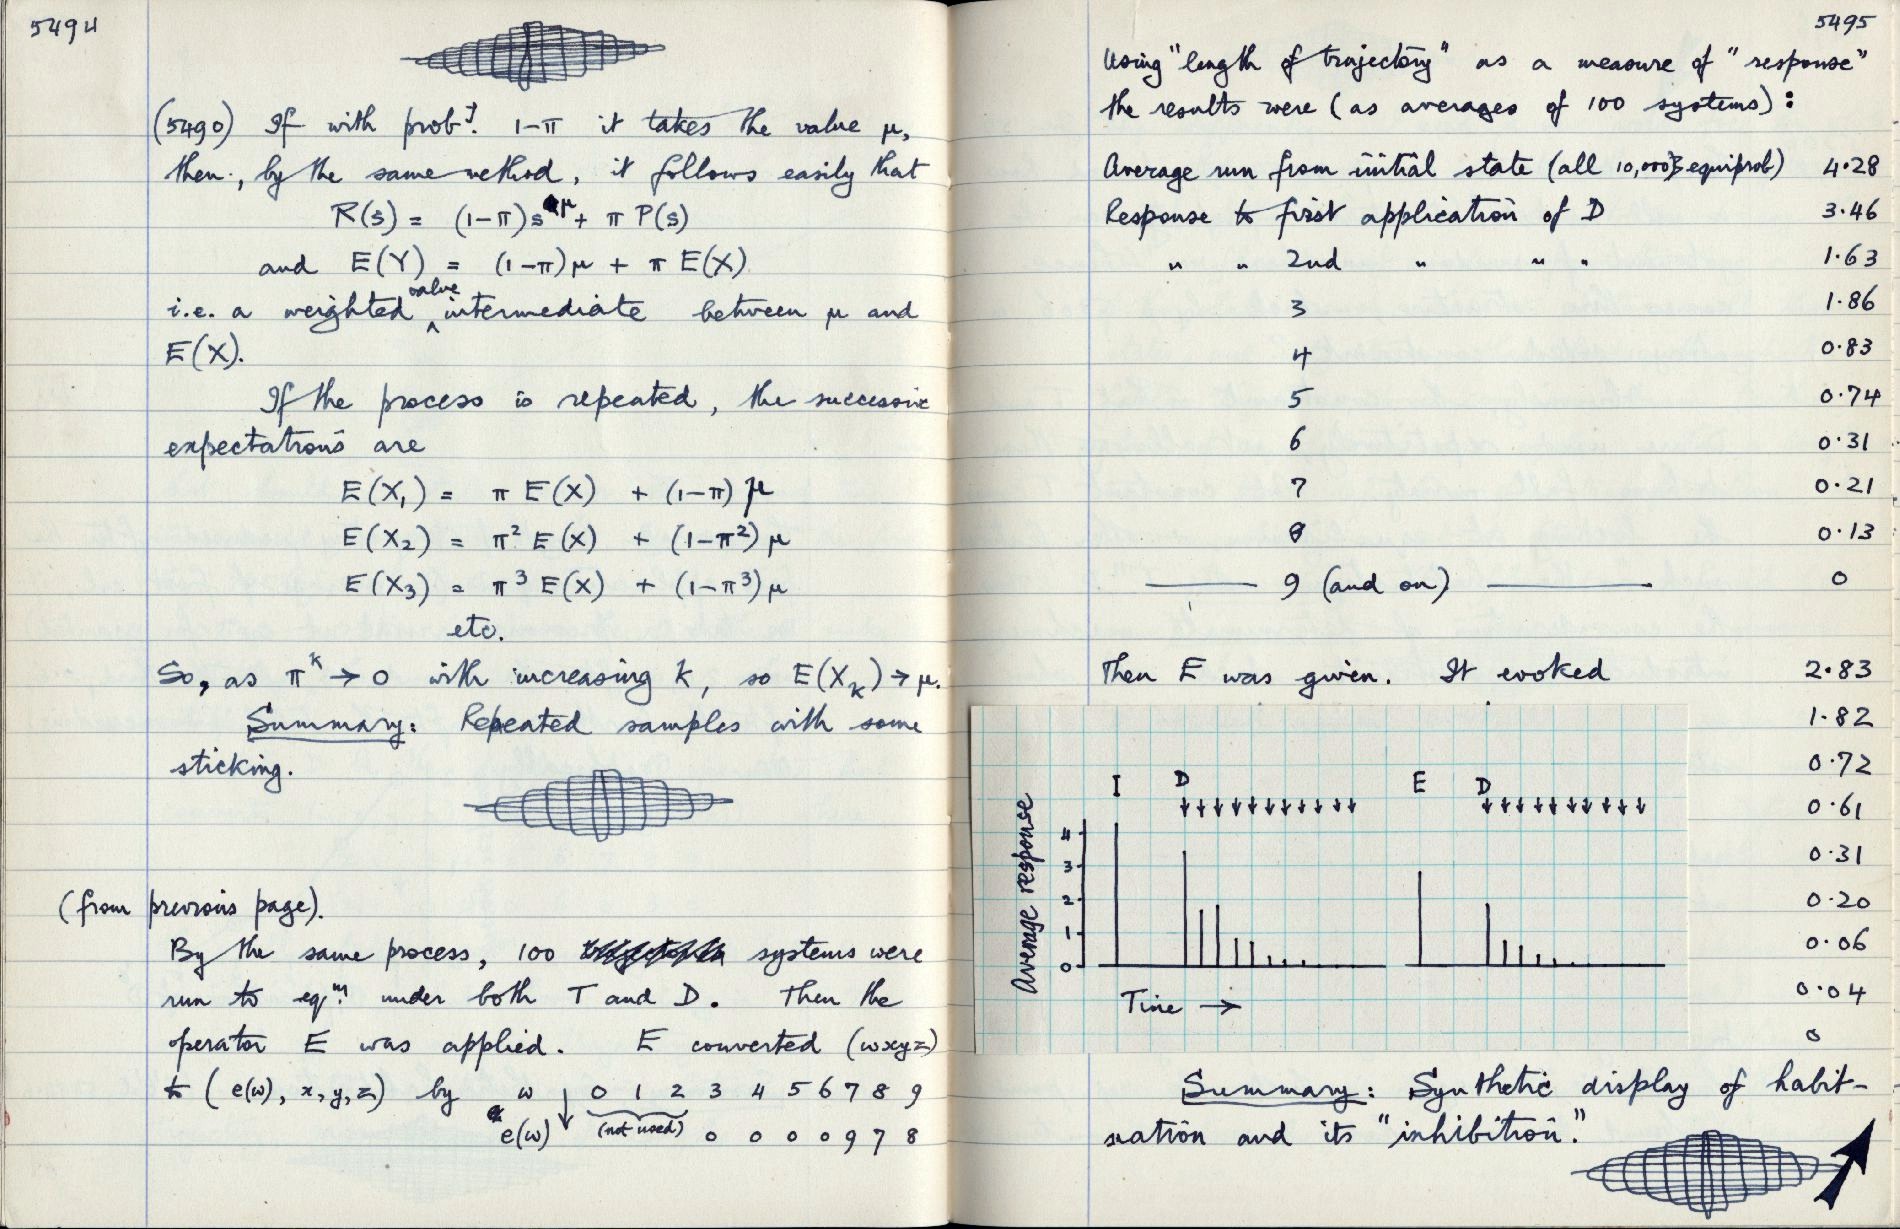 5494
(5490) If with prob^y. 1-π it takes the value μ,
then, by the same method, it follows easily that
R(s) = (1-π)s^μ + π P(s)
and E(Y) = (1-π)μ + π E(X)
i.e. a weighted value intermediate between μ and
E(X).
If the process is repeated, the successive
expectations are
E(X₁) = π E(X) + (1-π) μ
E(X₂) = π² E(X) + (1-π²) μ
E(X₃) = π³ E(X) + (1-π³) μ
etc.
So, as π^k → 0 with increasing k, so E(X_k) → μ.
Summary: Repeated samples with some
sticking.
(from previous page).
By the same process, 100 systems were
run to eq^m. under both T and D. Then the
operator E was applied. E converted (wxyz)
to (e(w), x, y, z) by w ↓ 0 1 2 3 4 5 6 7 8 9
e(w) (not used) 0 0 0 0 9 7 8
5495
Using "length of trajectory" as a measure of "response"
the results were (as averages of 100 systems):
Average run from initial state (all 10,000 equiprob) 4.28
Response to first application of D 3.46
" " 2nd " " " 1.63
3 1.86
4 0.83
5 0.74
6 0.31
7 0.21
8 0.13
9 (and on) 0
Then E was given. It evoked 2.83
1.82
0.72
0.61
0.31
0.20
0.06
0.04
0
I D E D
Average response
4
3
2
1
0
Time →
Summary: Synthetic display of habit-
uation and its "inhibition."